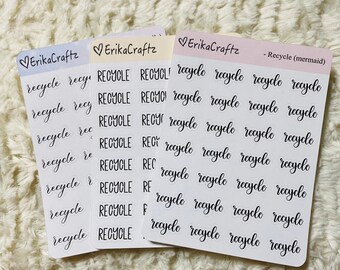 ErikaCraftz
recycle recy
recycle
recycle
recycle
recycle
recycle
recycle
ErikaCraftz
RECYCLE RECYCLE
RECYCLE RECYCLE
RECYCLE RECYCL
RECYCLE RECYCL
RECYCLE RECYC
RECYCLE RECY
RECYCLE REC
RECYCLE REC
ErikaCraftz - Recycle (mermaid)
recycle recycle recycle recycle
recycle recycle recycle recycle
recycle recycle recycle recycle
recycle recycle recycle recycle
recycle recycle recycle recycle
recycle recycle recycle recycle
recycle recycle recycle recycle